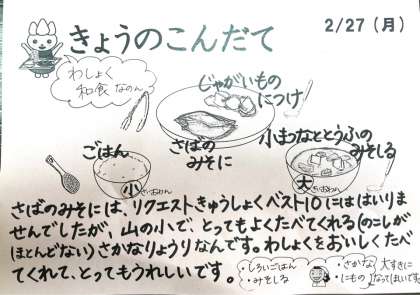 きょうのこんだて
2/27（月）
わしょく
和食なのん
じゃがいもの
につけ
ごはん
さばの
みそに
小まつなととうふの
みそしる
小
さいおわん
大
さいおわん
さばのみそには、リクエストきゅうしょくベスト10にははいりま
せんでしたが、山の小で、とってもよくたべてくれる(のこしが
ほとんどない)さかなりょうりなんです。わしょくをおいしくたべ
てくれて、とってもうれしいです。
・しろいごはん
・みそしる
・さかな
・にもの
大すきに
なってほしいです。